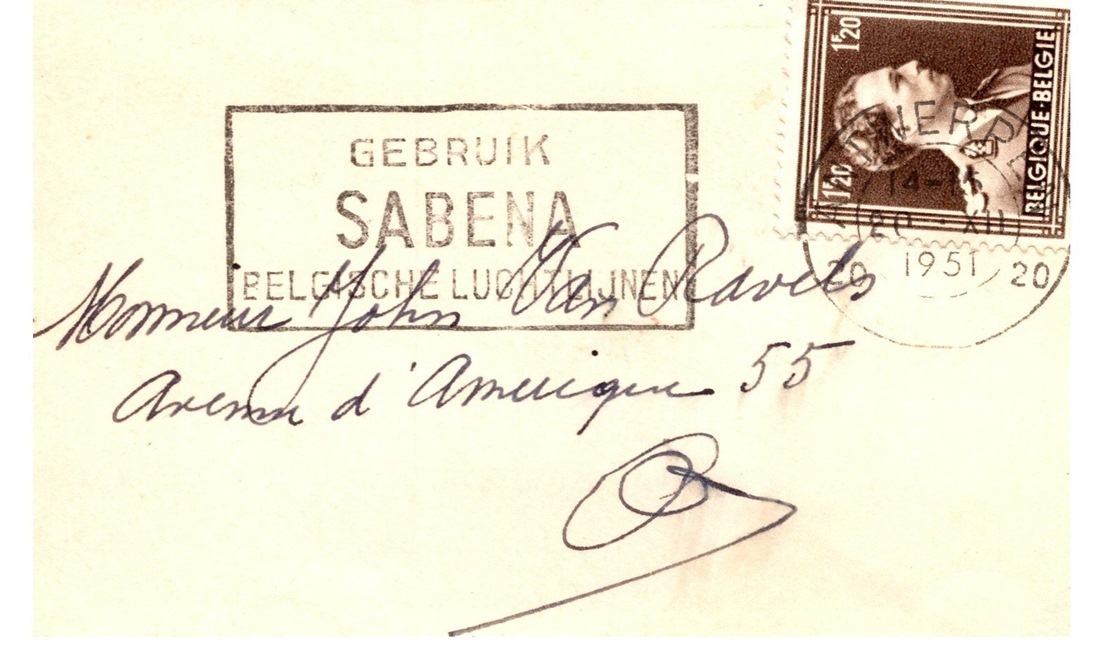 GEBRUIK
SABENA
BELGISCHE LUCHTLIJNEN
1F20
1F20
BELGIQUE·BELGIE
14-15
20 XII
1951
20 20
Monsieur John Van Ravels
Avenue d'Amerique 55